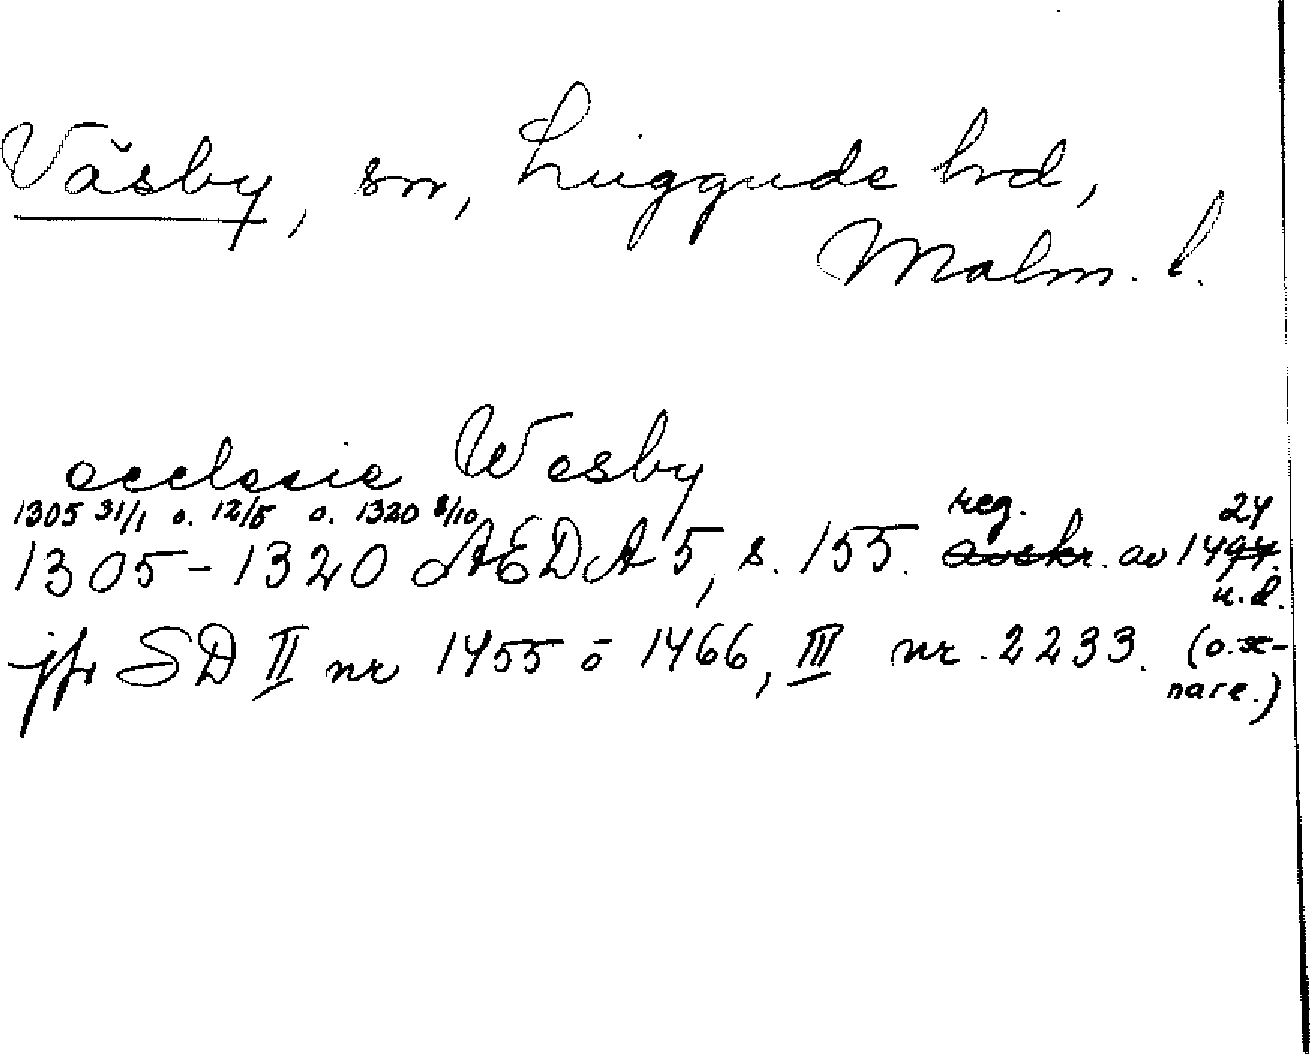 Väsby, sn, Luggude hrd,
Malm. l.
ecclesie Wesby
1305 31/1 o. 12/5 o. 1320 8/10 reg. 24
1305-1320 AEDA 5, s. 155. avskr. av 1494.
u.d.
jfr SD II nr 1455 o 1466, III nr. 2233. (o.
nare.)